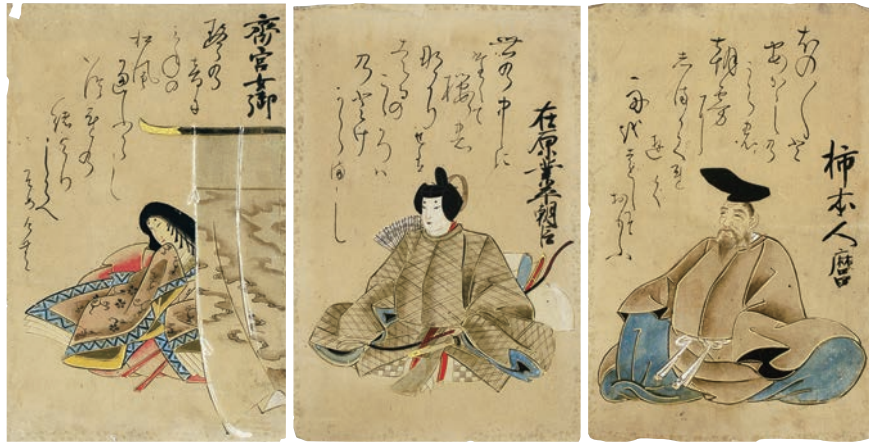 柿本人麿
ほの〱と
あかしの
うらの
朝霧に
しまかくれ
ゆく
舟をしそ
おもふ
在原業平朝臣
世の中に
たえて
桜の
なかりせは
はるのこゝろは
のとけ
からまし
齋宮女御
琴の音に
みねの
松風
通ふらし
いつれの
緒より
しらへ
そめけむ